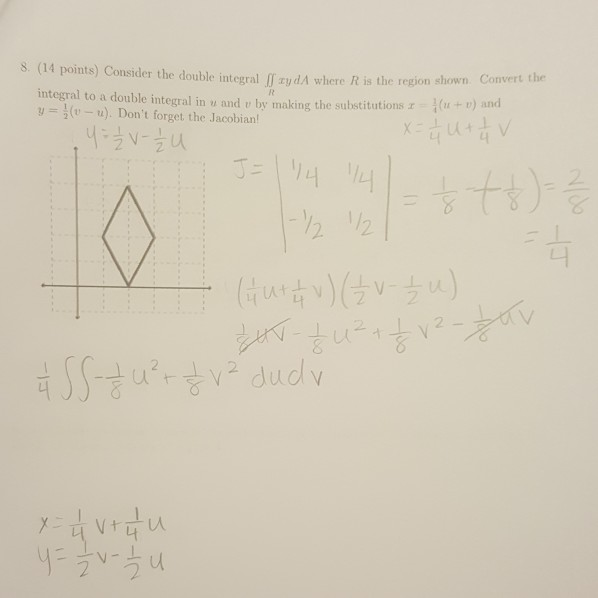 8. (14 points) Consider the double integral ∬_R xy dA where R is the region shown. Convert the
integral to a double integral in u and v by making the substitutions x = ¼(u + v) and
y = ½(v − u). Don't forget the Jacobian!
y = ½v − ½u
x = ¼u + ¼v
J = | 1/4 1/4 |
| -1/2 1/2 |
= 1/8 - (- 1/8) = 2/8
= 1/4
(¼u + ¼v)(½v − ½u)
⅛uv − ⅛u² + ⅛v² − ⅛uv
¼ ∫∫ -⅛u² + ⅛v² du dv
x = ¼v + ¼u
y = ½v − ½u